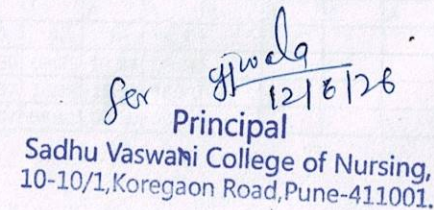 for
12/6/26
Principal
Sadhu Vaswani College of Nursing,
10-10/1,Koregaon Road,Pune-411001.